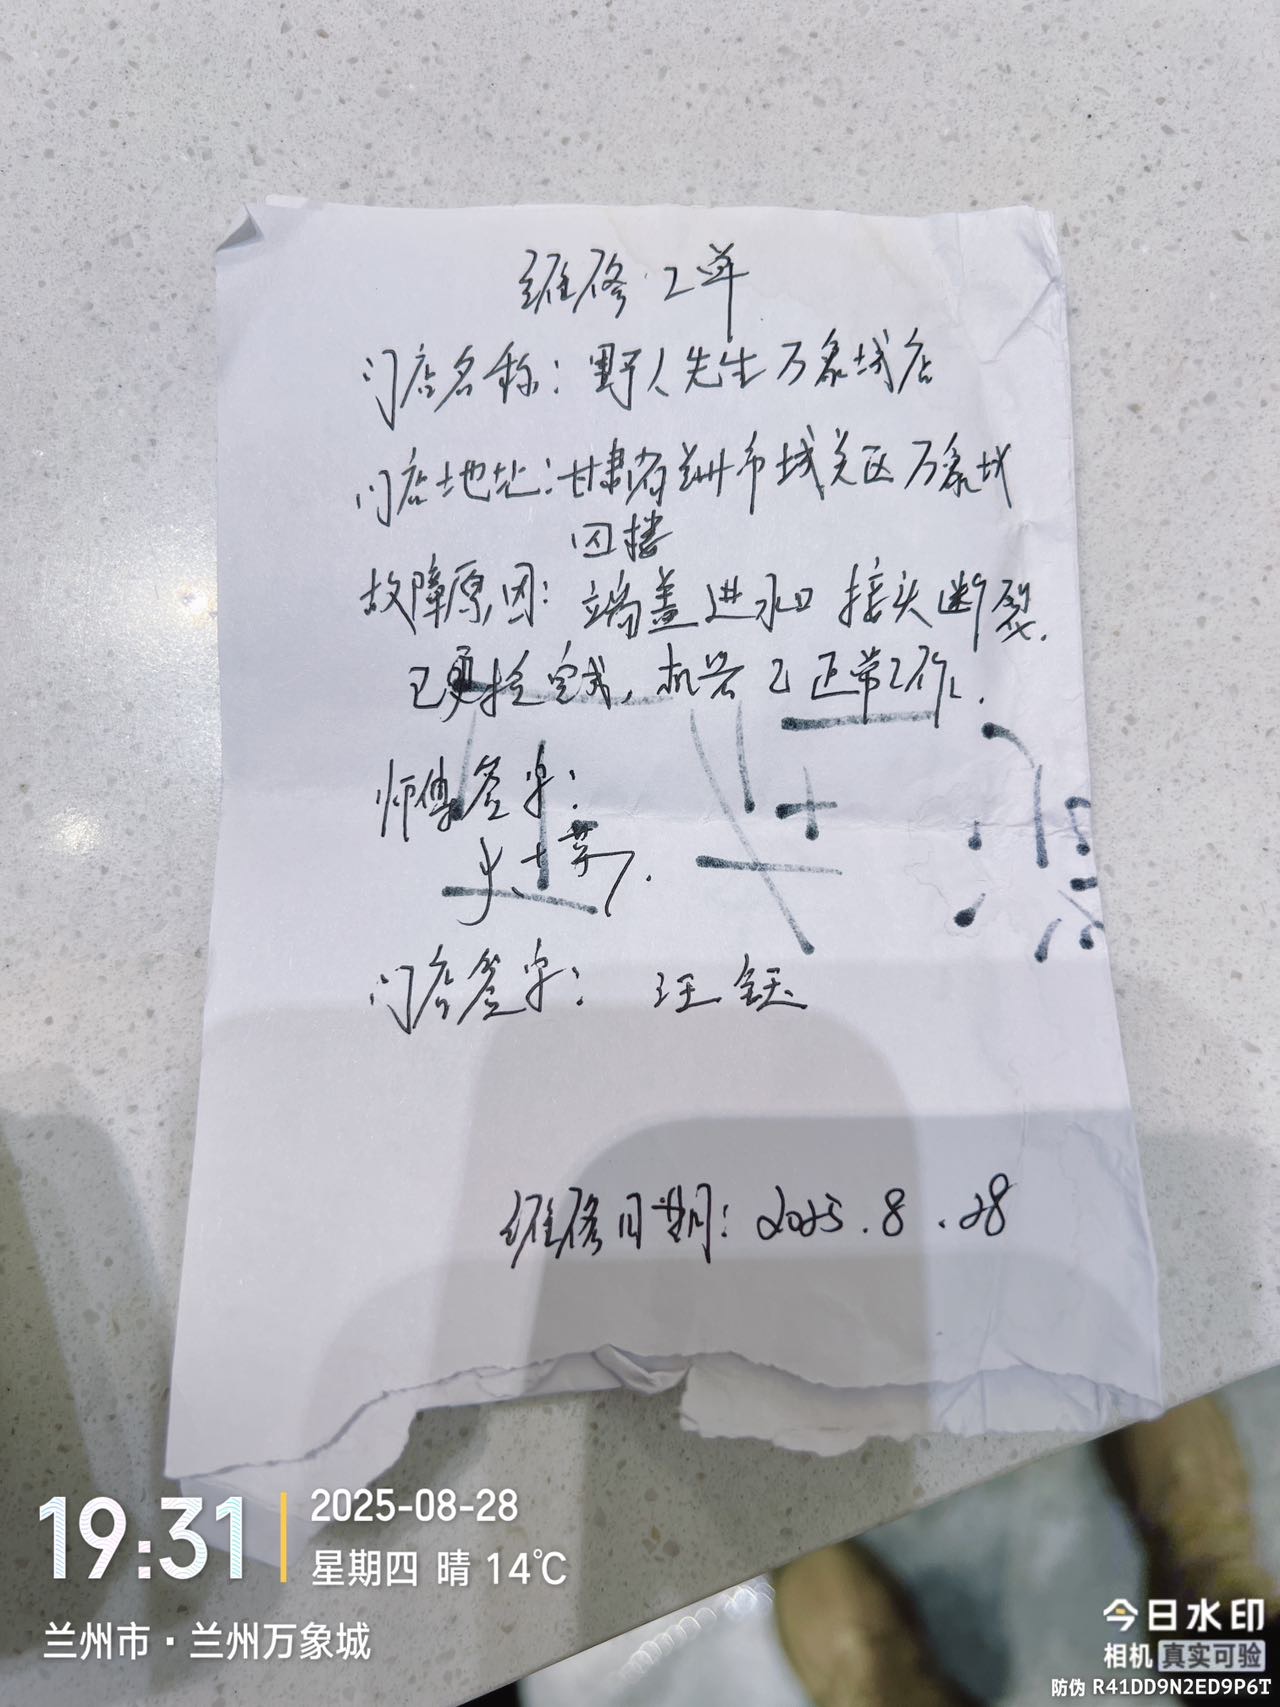 维修工单
门店名称：野人先生万象城店
门店地址：甘肃省兰州市城关区万象城
四楼
故障原因：端盖进水口接头断裂.
已更换完成，机器已正常工作.
师傅签字：
门店签字：汪钰
维修日期：2025.8.28
19:31
2025-08-28
星期四 晴 14℃
兰州市·兰州万象城
今日水印
相机 真实可验
防伪 R41DD9N2ED9P6T